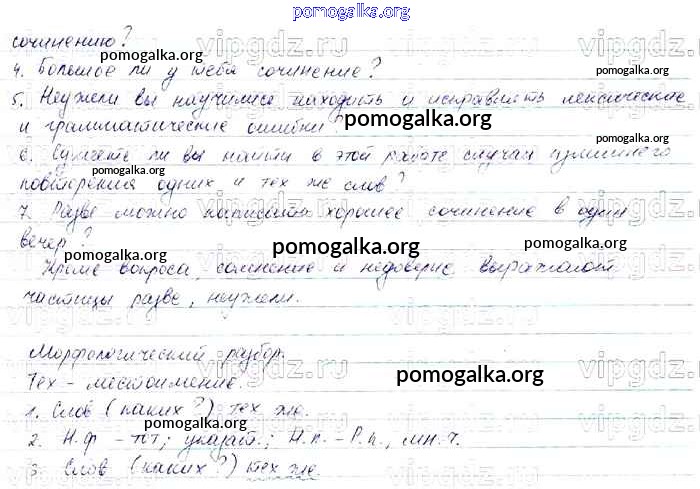 pomogalka.org
сочинению?
4. Большое ли у тебя сочинение?
5. Неужели вы научились находить и исправлять лексические
и грамматические ошибки?
6. Сумеете ли вы найти в этой работе случаи излишнего
повторения одних и тех же слов?
7. Разве можно написать хорошее сочинение в один
вечер?
Кроме вопроса, сомнение и недоверие выражают
частицы разве, неужели.
Морфологический разбор.
Тех - местоимение.
1. Слов (каких?) тех же.
2. Н.ф - тот; указат.; Н.п. - Р.п., мн.ч.
3. Слов (каких?) тех же.
pomogalka.org
vipgdz.ru